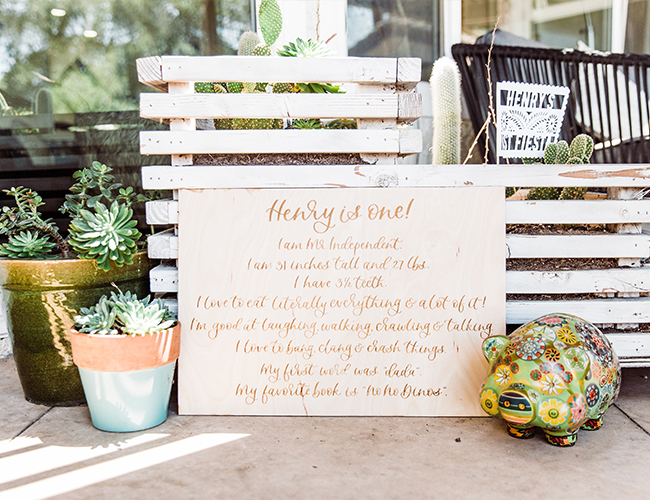 HENRY'S
1ST FIESTA
Henry is one!
I am Mr. Independent.
I am 31 inches tall and 27 lbs.
I have 3½ teeth.
I love to eat literally everything & a lot of it!
I'm good at laughing, walking, crawling & talking
I love to bang, clang & crash things.
My first word was "dada".
My favorite book is "No No Dinos".